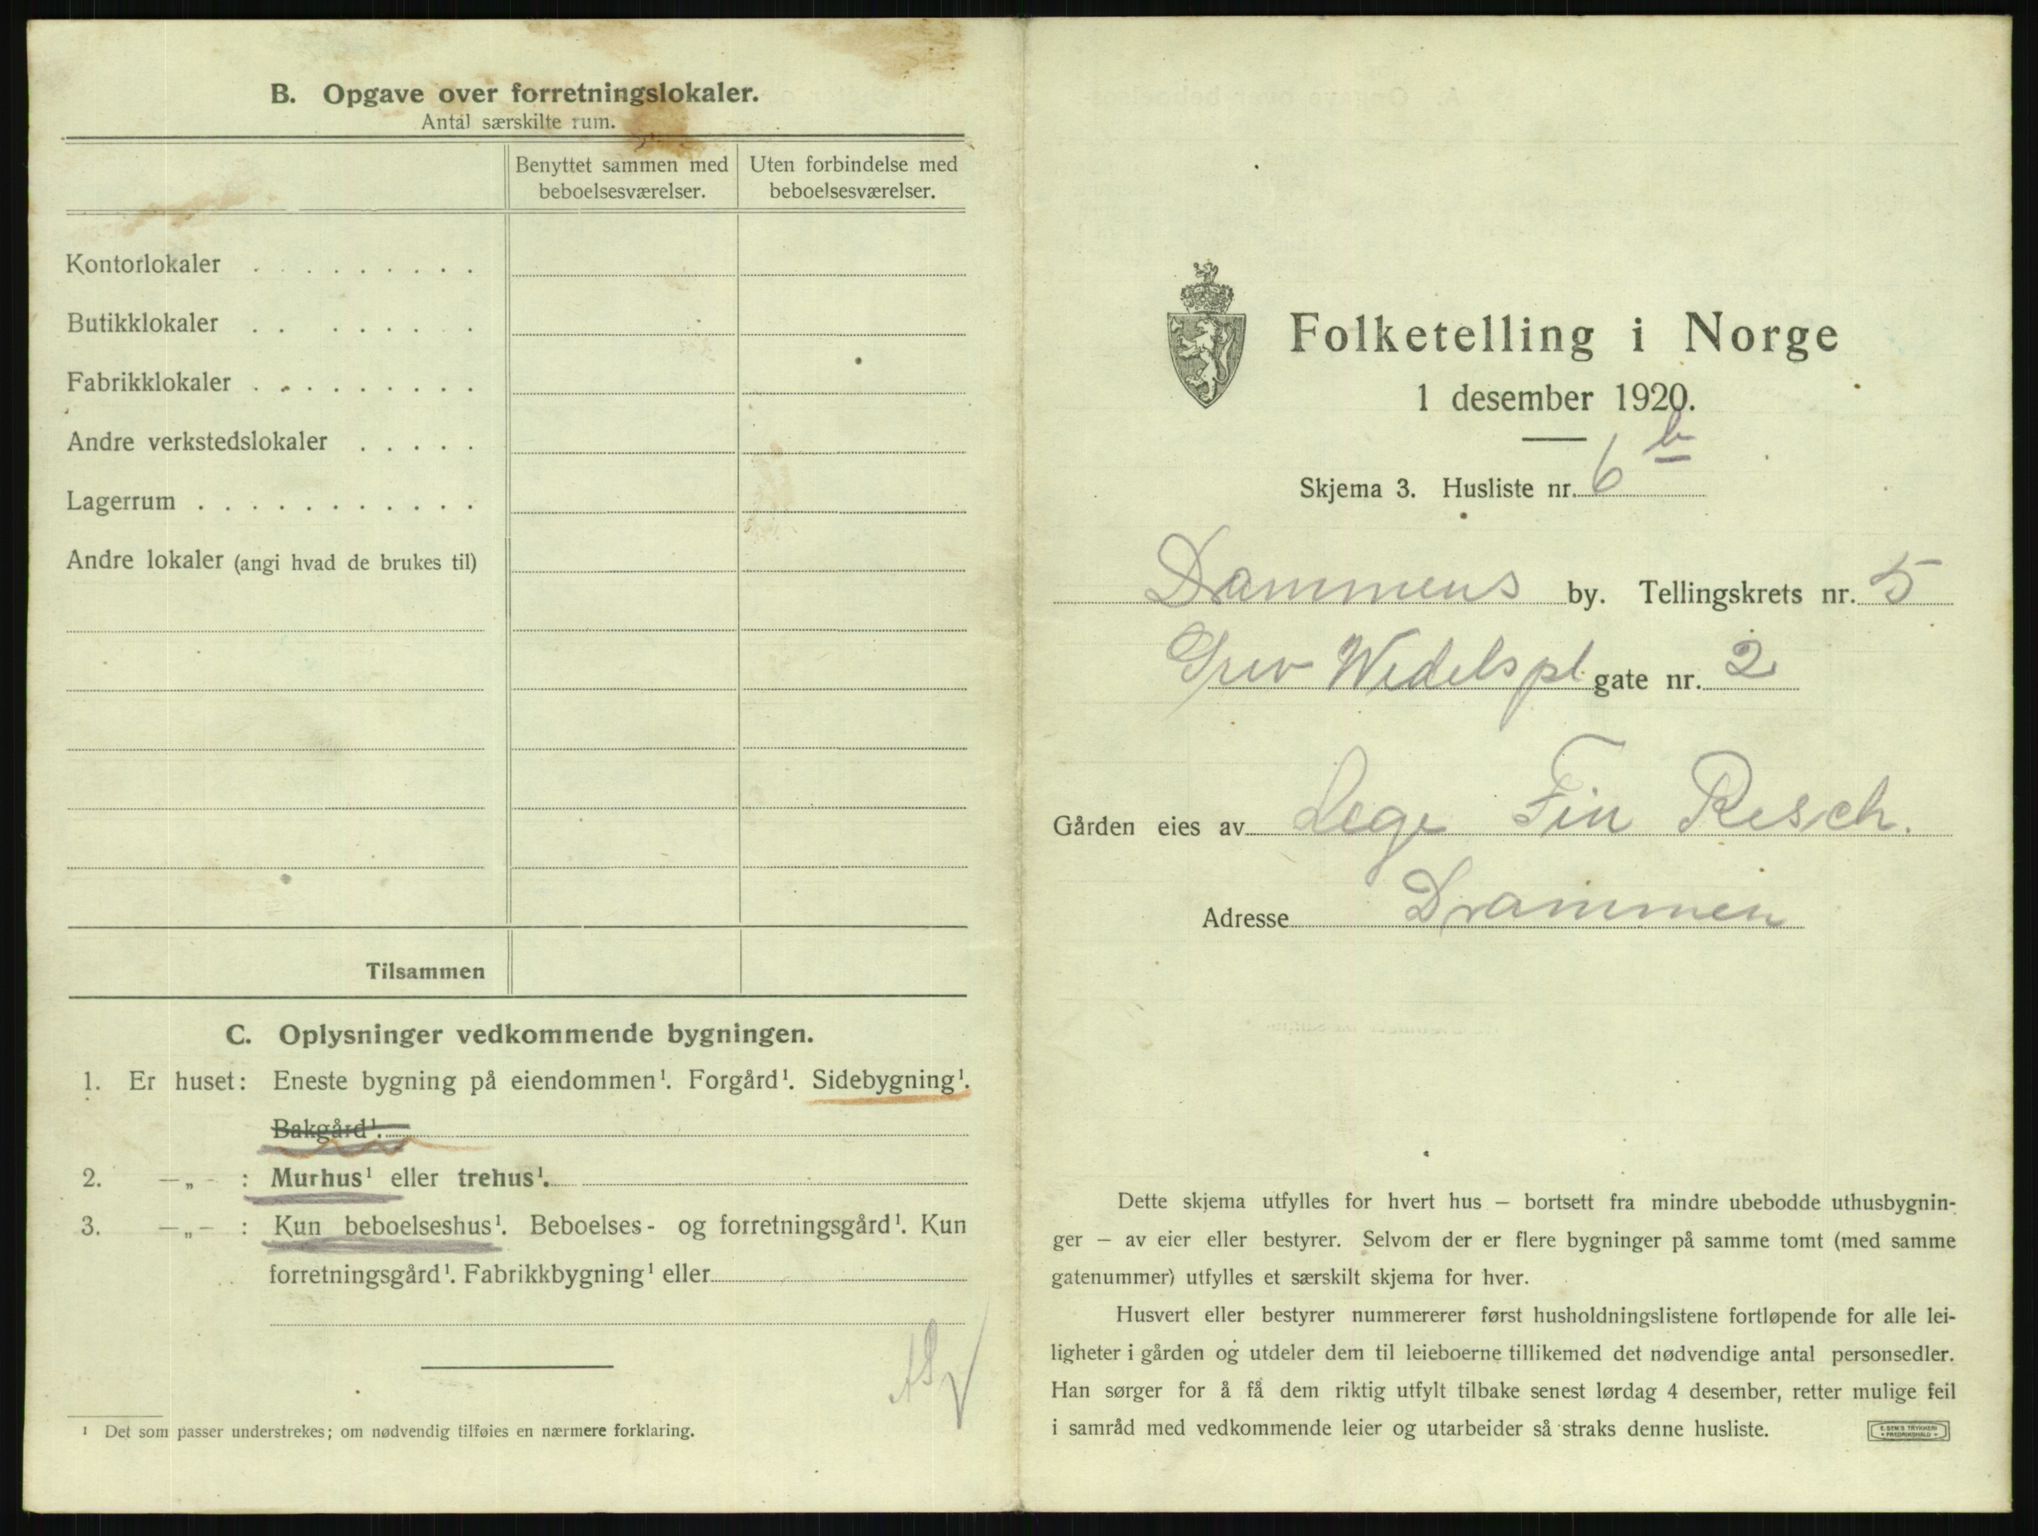 B. Opgave over forretningslokaler.
Antal særskilte rum.
Benyttet sammen med beboelsesværelser.
Uten forbindelse med beboelsesværelser.
Kontorlokaler . . . . . . . . .
Butikklokaler . . . . . . . .
Fabrikklokaler . . . . . . . . .
Andre verkstedslokaler . . . . .
Lagerrum . . . . . . . . . . .
Andre lokaler (angi hvad de brukes til)
Tilsammen
C. Oplysninger vedkommende bygningen.
1. Er huset: Eneste bygning på eiendommen¹. Forgård¹. Sidebygning¹.
Bakgård¹.
2. —„— : Murhus¹ eller trehus¹.
3. —„— : Kun beboelseshus¹. Beboelses- og forretningsgård¹. Kun
forretningsgård¹. Fabrikkbygning¹ eller
¹ Det som passer understrekes; om nødvendig tilføies en nærmere forklaring.
Folketelling i Norge
1 desember 1920.
Skjema 3. Husliste nr. 6 b
Dammens by. Tellingskrets nr. 5
Grev Wedelspl. gate nr. 2
Gården eies av Lege Fin Resch.
Adresse Drammen
Dette skjema utfylles for hvert hus — bortsett fra mindre ubebodde uthusbygnin-
ger — av eier eller bestyrer. Selvom der er flere bygninger på samme tomt (med samme
gatenummer) utfylles et særskilt skjema for hver.
Husvert eller bestyrer nummererer først husholdningslistene fortløpende for alle lei-
ligheter i gården og utdeler dem til leieboerne tillikemed det nødvendige antal personsedler.
Han sørger for å få dem riktig utfylt tilbake senest lørdag 4 desember, retter mulige feil
i samråd med vedkommende leier og utarbeider så straks denne husliste.
E. SEM'S TRYKKERI
FREDRIKSHALD